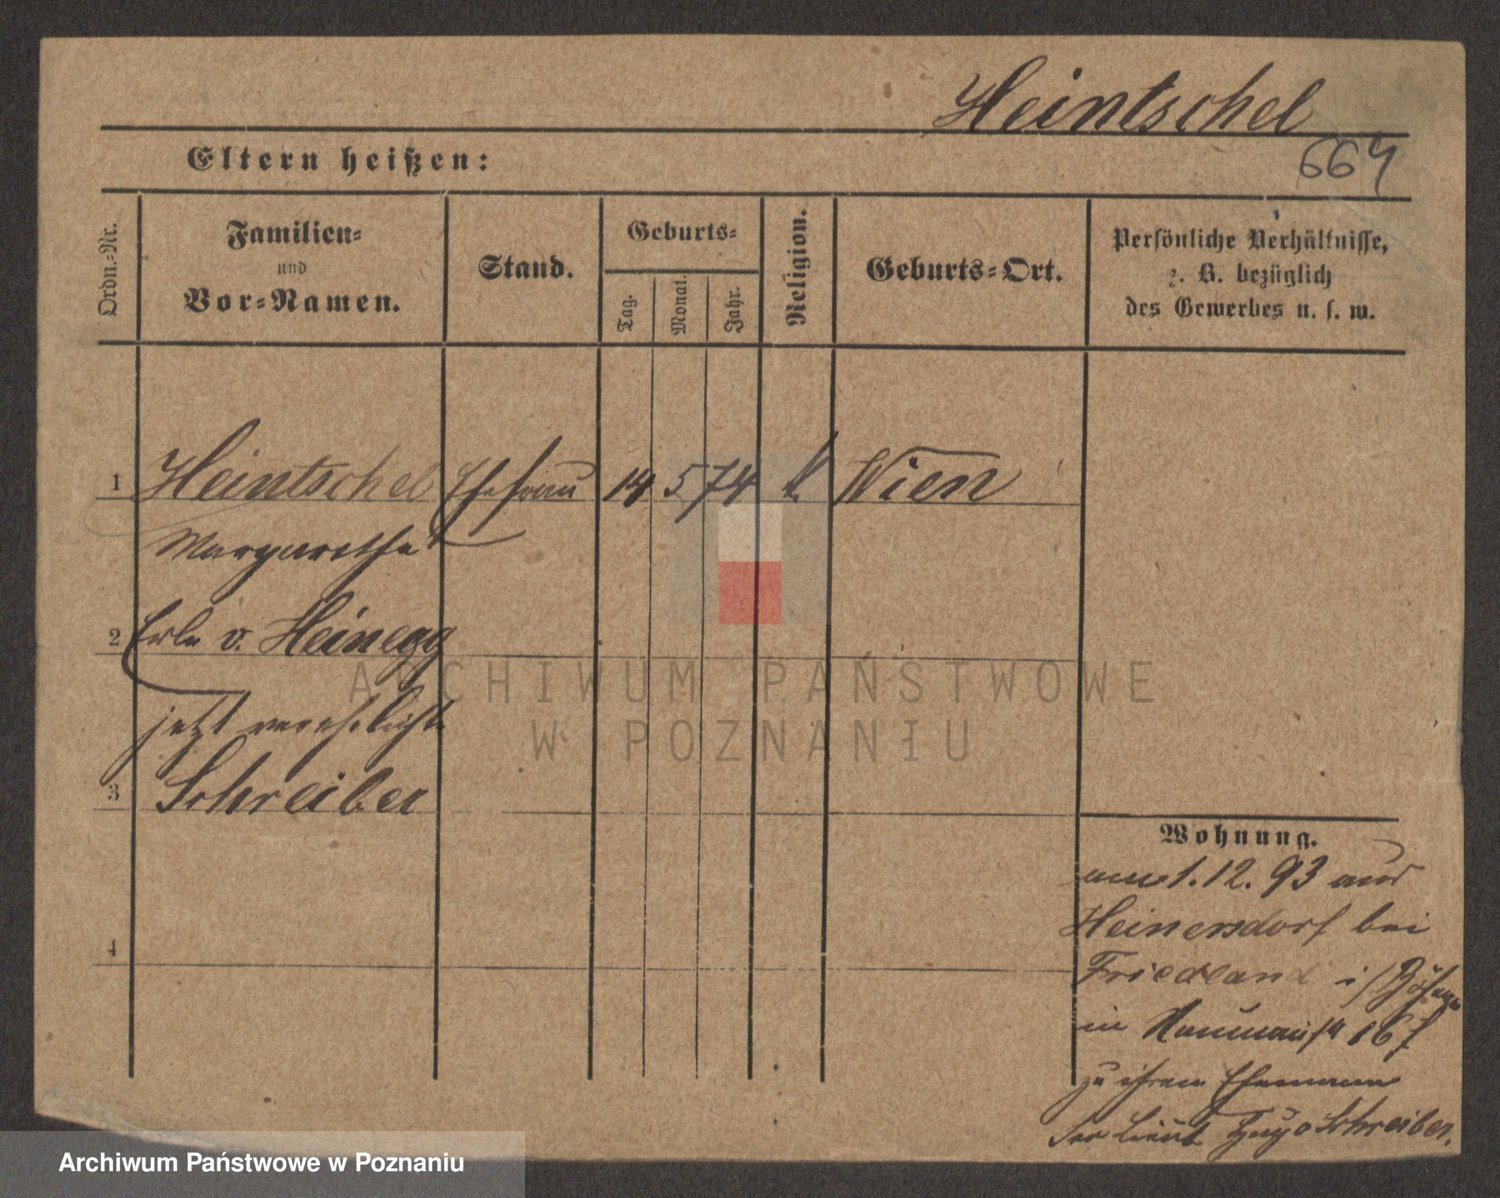 Heintschel
664
Eltern heißen:
Ordn.-Nr.
Familien-
und
Vor-Namen.
Stand.
Geburts-
Tag.
Monat.
Jahr.
Religion.
Geburts-Ort.
Persönliche Verhältnisse,
z. B. bezüglich
des Gewerbes u. s. w.
1 Heintschel Ehefrau 14 5 74 k Wien
Margarethe
2 Edle v. Heinegg
jetzt verehelichte
3 Schreiber
4
Wohnung.
am 1. 12. 93 aus
Heinersdorf bei
Friedland i/Böhmen
in 16
zu ihrem Ehemann
Sec Lieut Hugo Schreiber.
ARCHIWUM PAŃSTWOWE
W POZNANIU
Archiwum Państwowe w Poznaniu